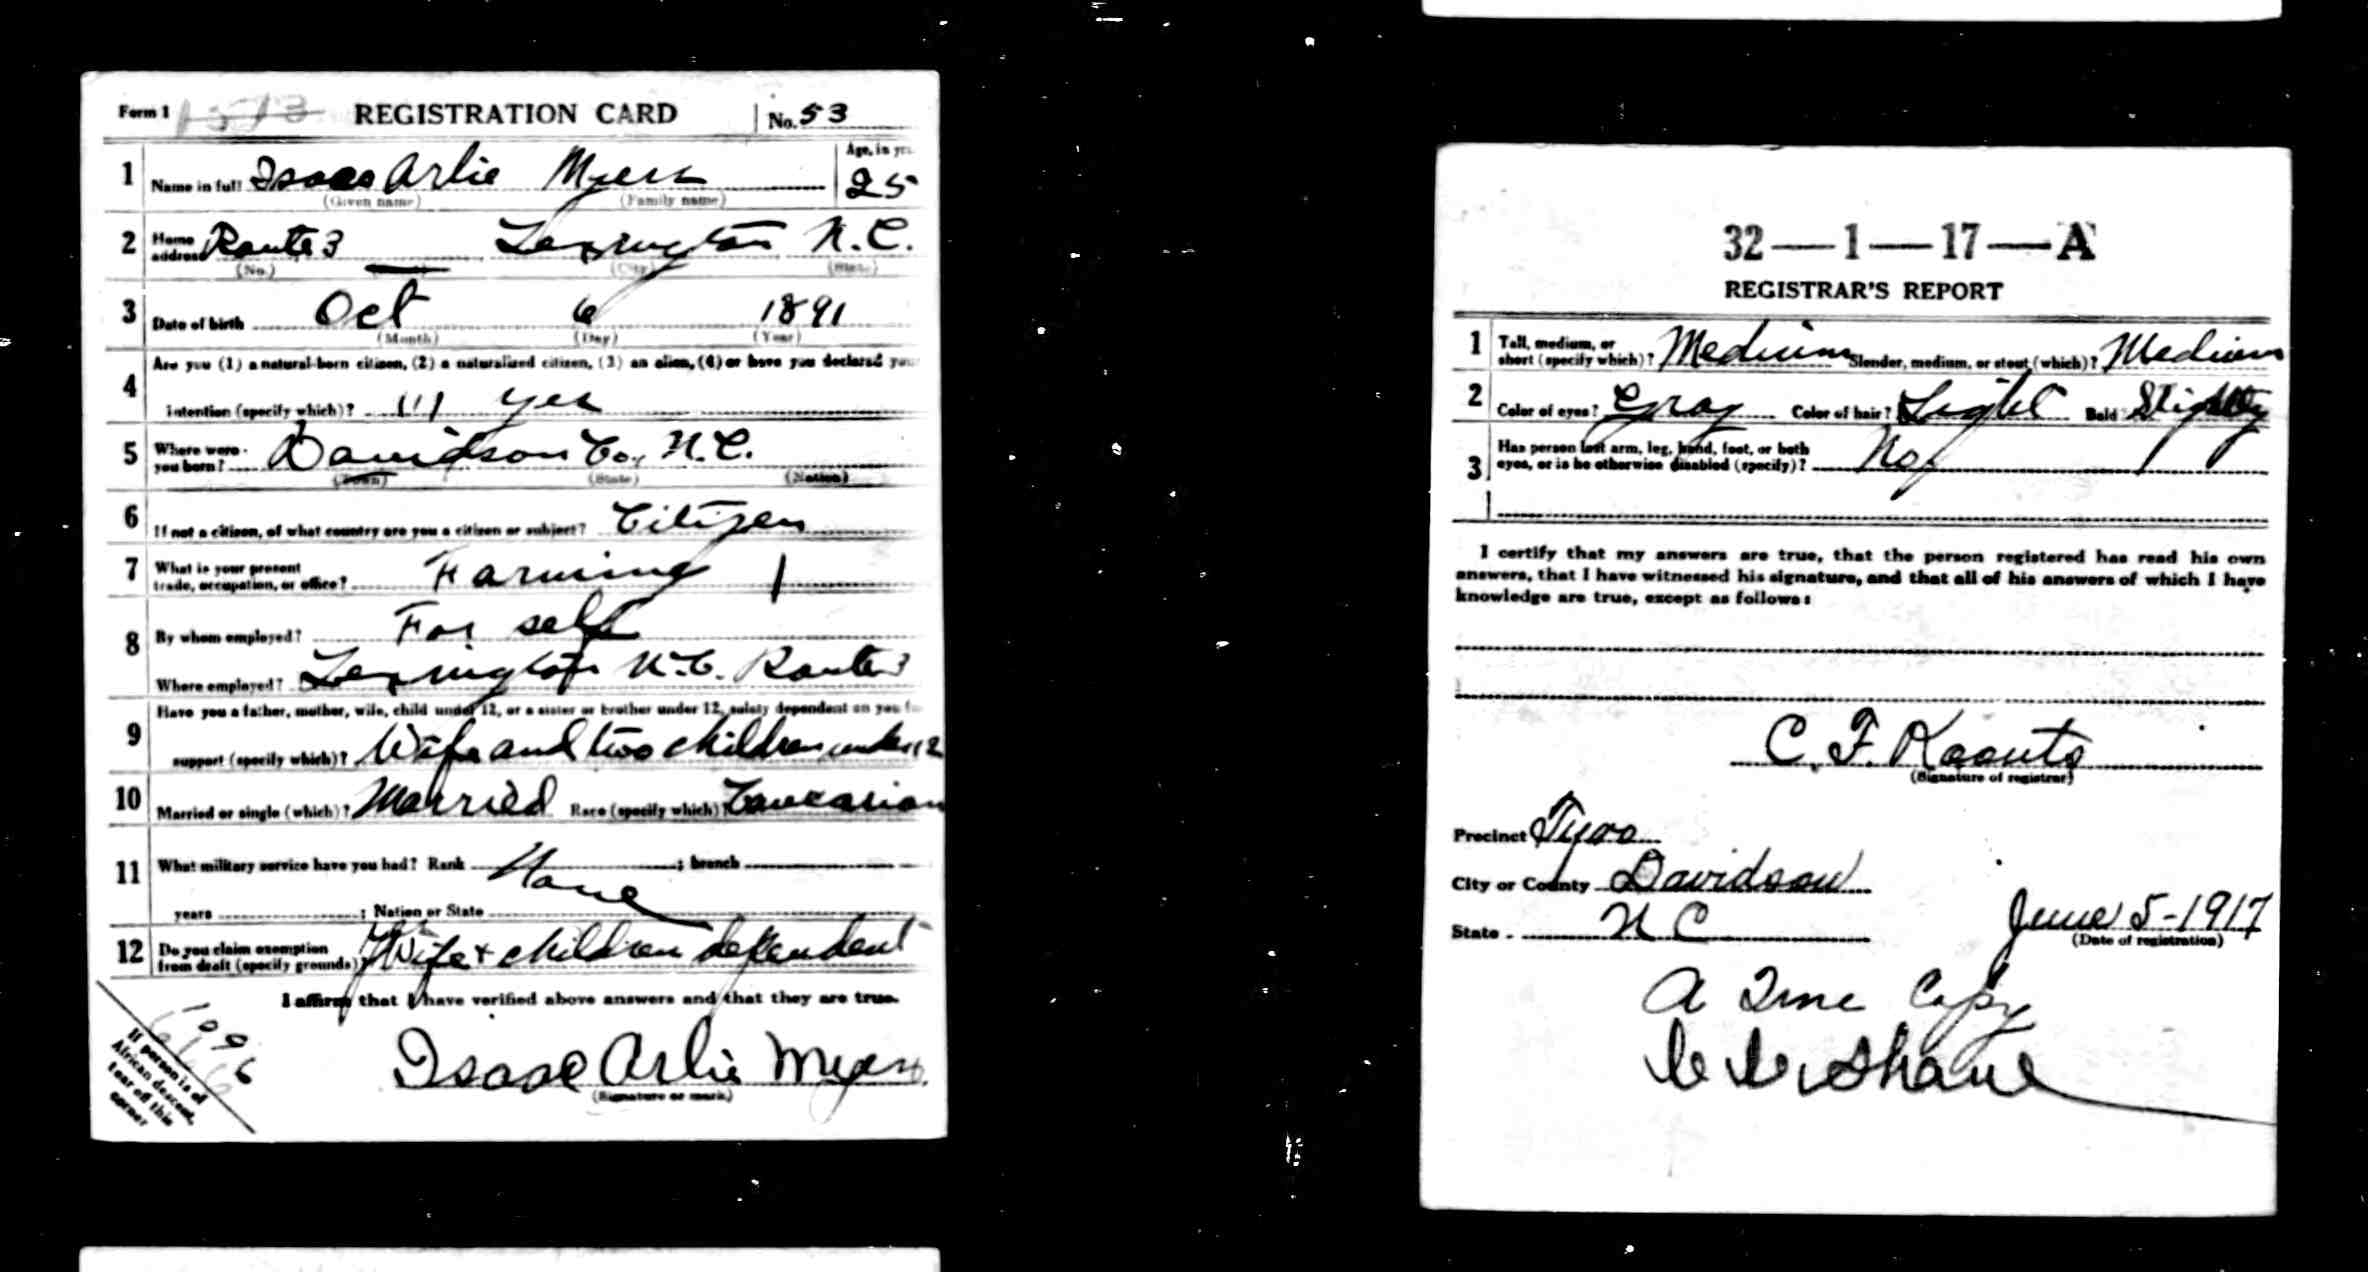 Form 1 1573 REGISTRATION CARD No. 53
1 Name in full Isaac Arlie Myers Age, in yrs. 25
(Given name) (Family name)
2 Home address Route 3 Lexington N.C.
(No.) (City) (State)
3 Date of birth Oct 6 1891
(Month) (Day) (Year)
4 Are you (1) a natural-born citizen, (2) a naturalized citizen, (3) an alien, (4) or have you declared your
intention (specify which)? (1) yes
5 Where were you born? Davidson Co., N.C.
(Town) (State) (Nation)
6 If not a citizen, of what country are you a citizen or subject? Citizen
7 What is your present trade, occupation, or office? Farming
8 By whom employed? For self
Where employed? Lexington N.C. Route 3
9 Have you a father, mother, wife, child under 12, or a sister or brother under 12, solely dependent on you for
support (specify which)? Wife and two children under 12
10 Married or single (which)? Married Race (specify which)? Caucasian
11 What military service have you had? Rank None ; branch
years ; Nation or State
12 Do you claim exemption from draft (specify grounds)? Wife + children dependent
I affirm that I have verified above answers and that they are true.
Isaac Arlie Myers
(Signature or mark)
If person is of
African descent,
tear off this
corner
32—1—17—A
REGISTRAR'S REPORT
1 Tall, medium, or short (specify which)? Medium Slender, medium, or stout (which)? Medium
2 Color of eyes? Gray Color of hair? Light Bald Slightly
3 Has person lost arm, leg, hand, foot, or both
eyes, or is he otherwise disabled (specify)? No
I certify that my answers are true, that the person registered has read his own
answers, that I have witnessed his signature, and that all of his answers of which I have
knowledge are true, except as follows:
C. F. Koonts
(Signature of registrar)
Precinct Tyro
City or County Davidson
State N C June 5-1917
(Date of registration)
A True Copy
Shaue